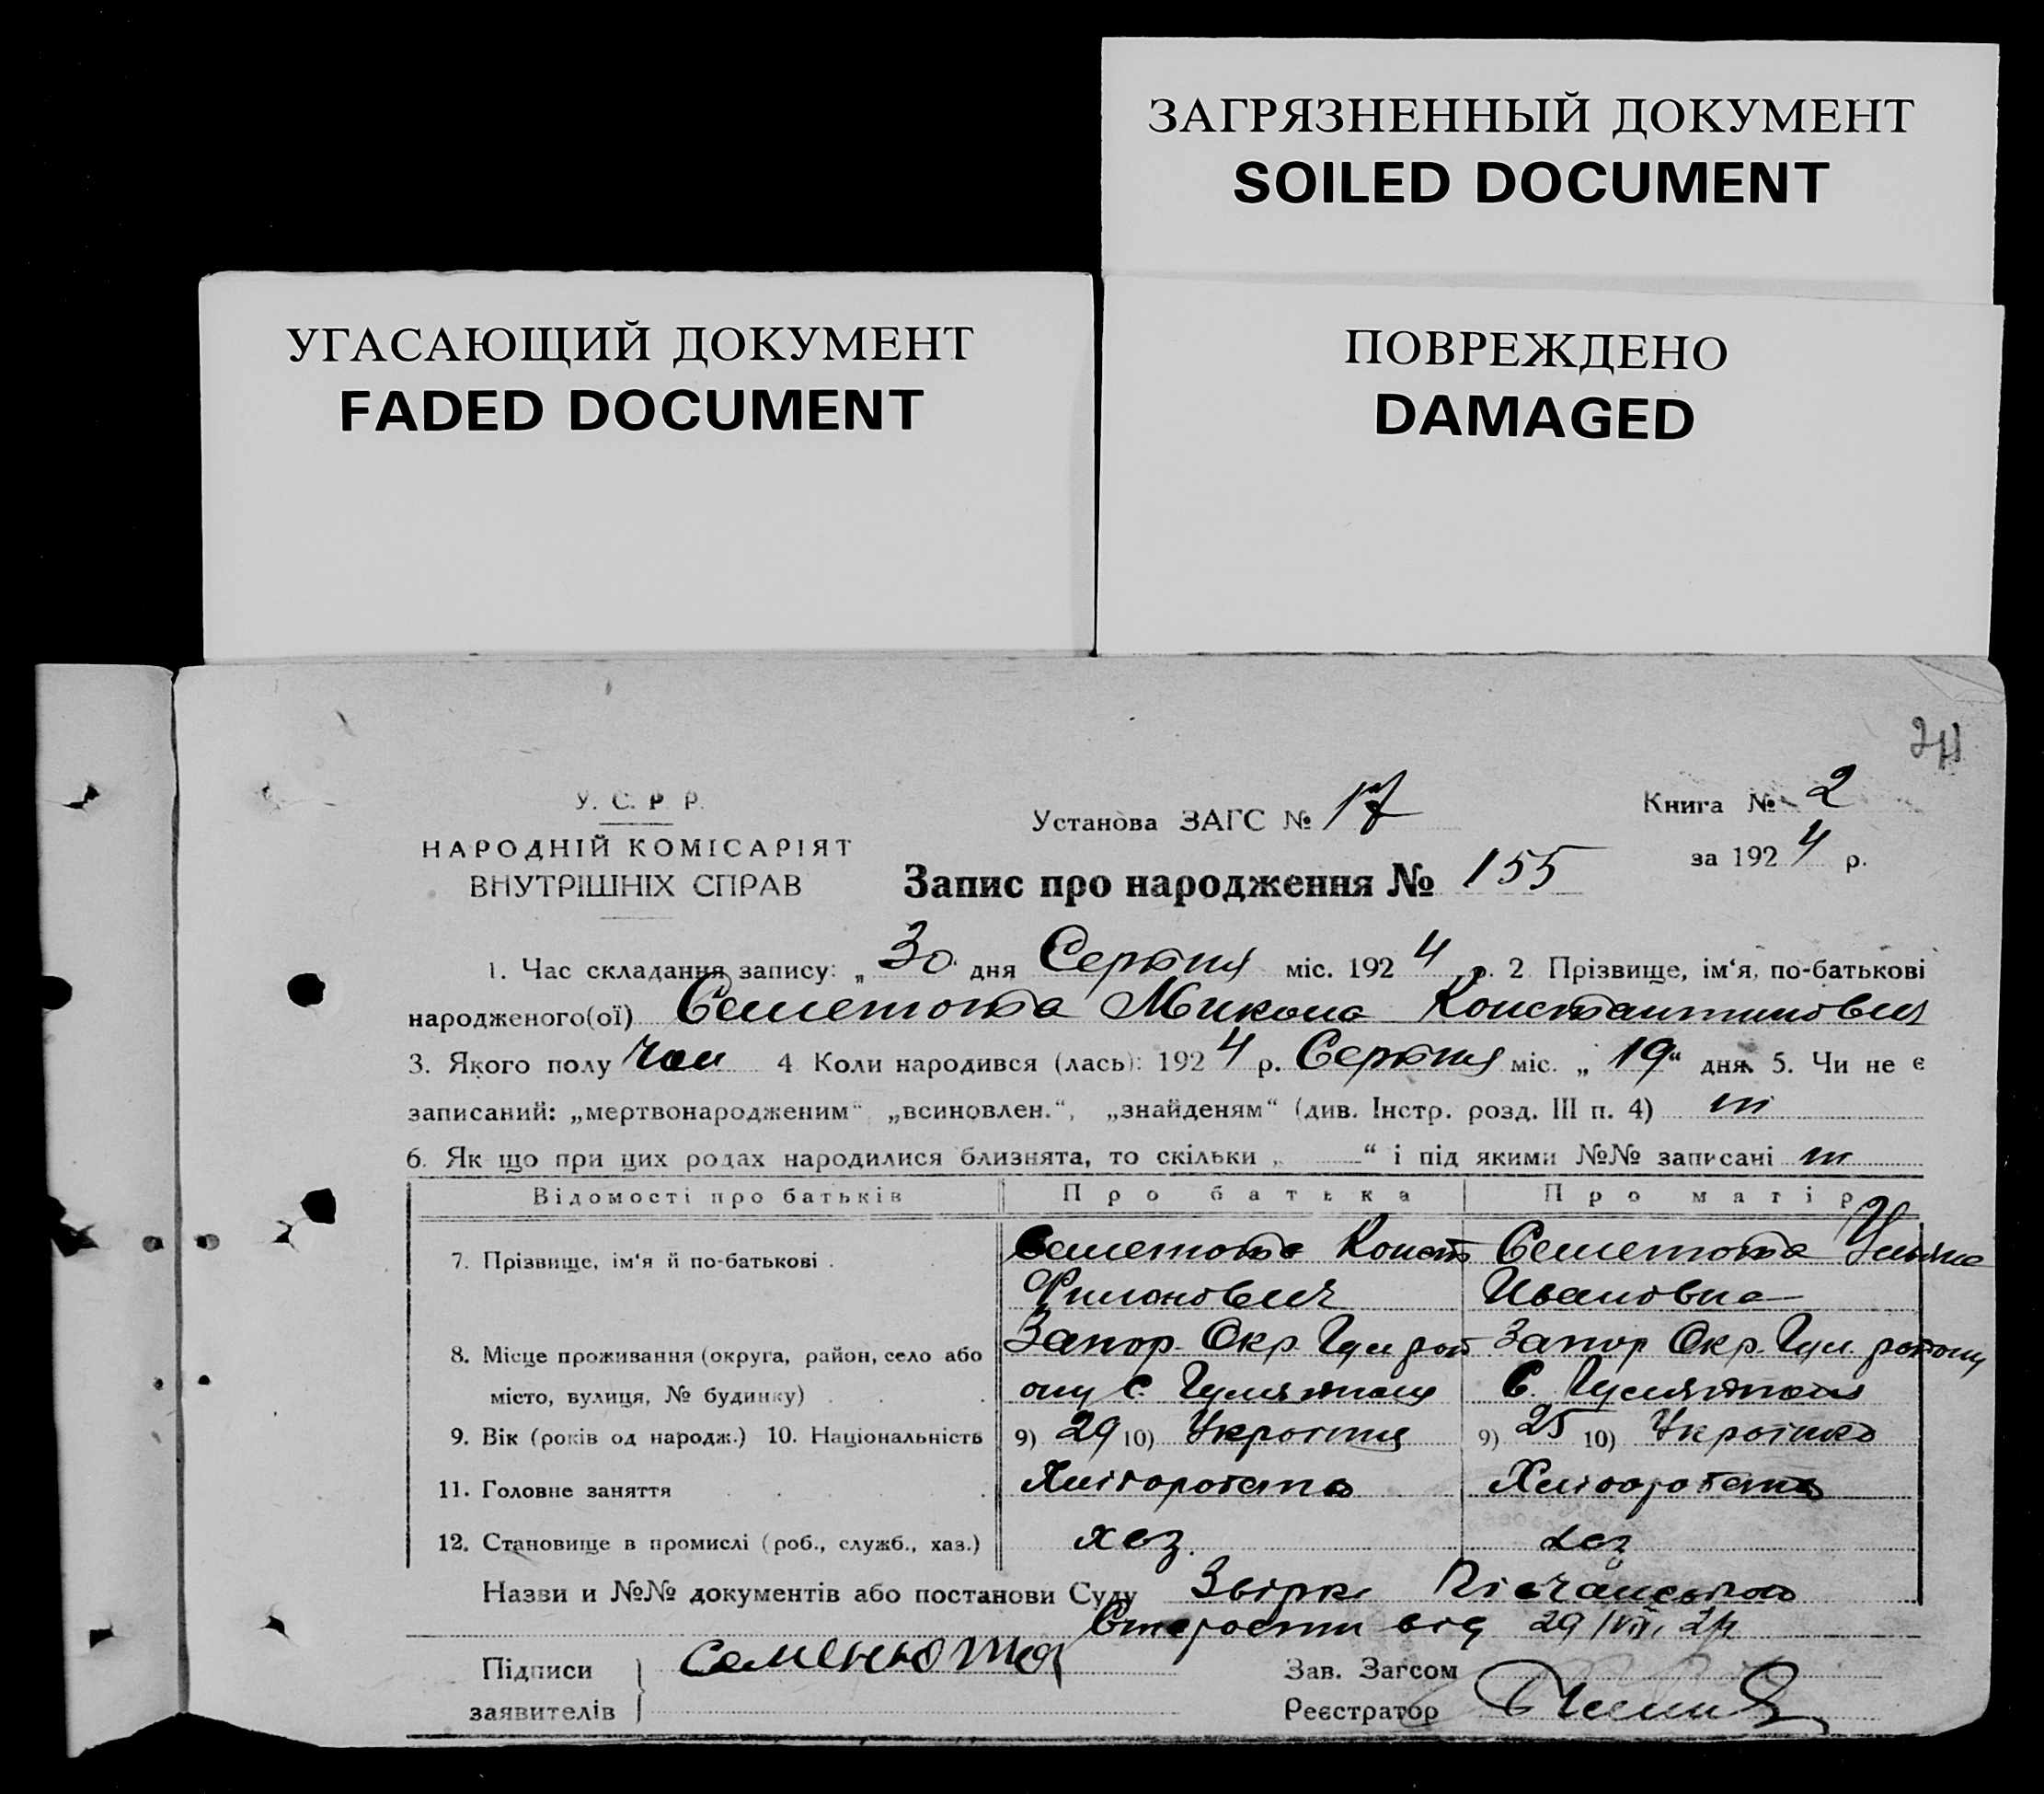 ЗАГРЯЗНЕННЫЙ ДОКУМЕНТ
SOILED DOCUMENT
УГАСАЮЩИЙ ДОКУМЕНТ
FADED DOCUMENT
ПОВРЕЖДЕНО
DAMAGED
24
У. С. Р. Р.
НАРОДНІЙ КОМІСАРІЯТ
ВНУТРІШНІХ СПРАВ
Установа ЗАГС № 17
Книга № 2
за 1924 р.
Запис про народження № 155
1. Час складання запису: „30 дня Серпня міс. 1924 р. 2 Прізвище, ім‘я, по-батькові
народженого(ої) Семенюта Микола Константинович
3. Якого полу чол 4 Коли народився (лась): 1924 р. Серпня міс. „19“ дня. 5. Чи не є
записаний: „мертвонародженим“ „всиновлен.“, „знайденям“ (див. Інстр. розд. III п. 4) ні
6. Як що при цих родах народилися близнята, то скільки „ “ і під якими №№ записані ні
Відомості про батьків Про батька Про матір
7. Прізвище, ім‘я й по-батькові . Семенюта Конст Семенюта Уляна
Филонович Ивановна
8. Місце проживання (округа, район, село або Запор. Окр. Гул рай Запор Окр. Гул. району
місто, вулиця, № будинку) ону с. Гуляйполя С. Гуляйполя
9. Вік (років од народж.) 10. Національність 9) 29 10) Украинц 9) 25 10) Українка
11. Головне заняття Хліборобств Хліборобств
12. Становище в промислі (роб., служб., хаз.) хоз. хоз
Назви и №№ документів або постанови Суду Пісчанського
Старости від 29/VIII 24
Підписи Семенюта Зав. Загсом
заявителів Реєстратор